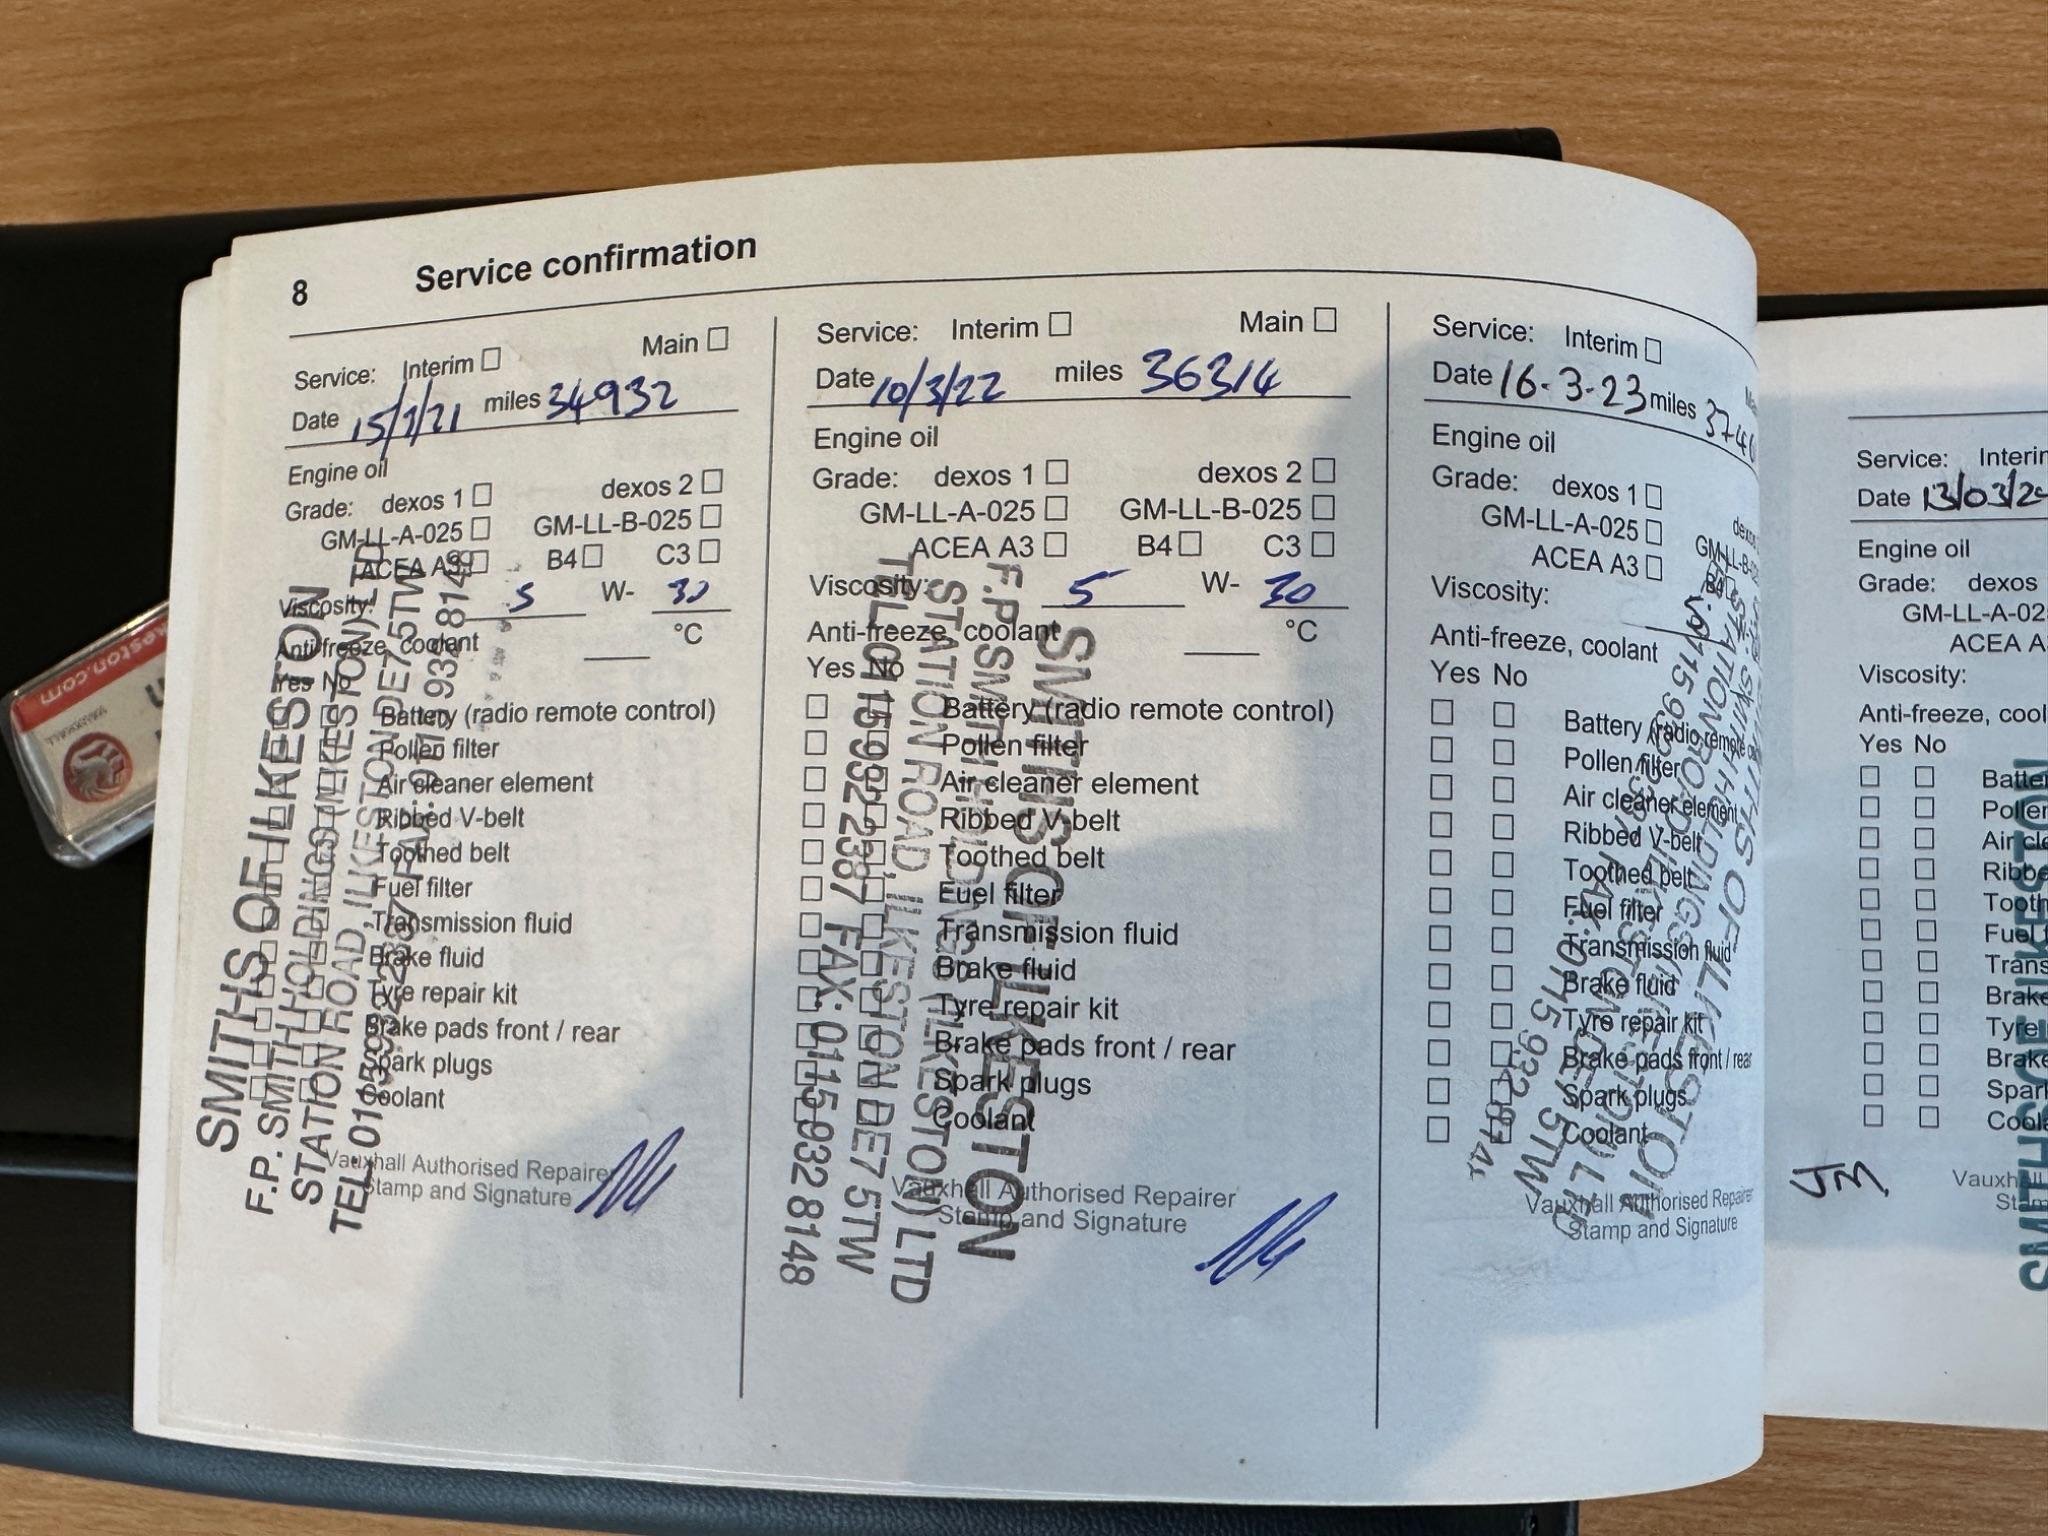 8 Service confirmation
Service: Interim Main
Date 15/7/21 miles 34932
Engine oil
Grade: dexos 1 dexos 2
GM-LL-A-025 GM-LL-B-025
ACEA A3 B4 C3
Viscosity: 5 W- 30
Anti-freeze, coolant °C
Yes No
Battery (radio remote control)
Pollen filter
Air cleaner element
Ribbed V-belt
Toothed belt
Fuel filter
Transmission fluid
Brake fluid
Tyre repair kit
Brake pads front / rear
Spark plugs
Coolant
Vauxhall Authorised Repairer
Stamp and Signature
SMITHS OF ILKESTON
F.P. SMITH HOLDINGS (ILKESTON) LTD
STATION ROAD, ILKESTON DE7 5TW
TEL: 0115 932 2387 FAX: 0115 932 8148
Service: Interim Main
Date 10/3/22 miles 36314
Engine oil
Grade: dexos 1 dexos 2
GM-LL-A-025 GM-LL-B-025
ACEA A3 B4 C3
Viscosity: 5 W- 30
Anti-freeze, coolant °C
Yes No
Battery (radio remote control)
Pollen filter
Air cleaner element
Ribbed V-belt
Toothed belt
Fuel filter
Transmission fluid
Brake fluid
Tyre repair kit
Brake pads front / rear
Spark plugs
Coolant
Vauxhall Authorised Repairer
Stamp and Signature
SMITHS OF ILKESTON
F.P. SMITH HOLDINGS (ILKESTON) LTD
STATION ROAD, ILKESTON DE7 5TW
TEL: 0115 932 2387 FAX: 0115 932 8148
Service: Interim
Date 16-3-23 miles 3746
Engine oil
Grade: dexos 1 dexos
GM-LL-A-025 GM-LL-B-
ACEA A3 B4
Viscosity:
Anti-freeze, coolant
Yes No
Battery (radio remote
Pollen filter
Air cleaner element
Ribbed V-belt
Toothed belt
Fuel filter
Transmission fluid
Brake fluid
Tyre repair kit
Brake pads front / rear
Spark plugs
Coolant
Vauxhall Authorised Repairer
Stamp and Signature
SMITHS OF ILKESTON
SMITH HOLDINGS (ILKESTON) LTD
STATION ROAD, ILKESTON DE7 5TW
Service: Interim
Date 13/03/2
Engine oil
Grade: dexos
GM-LL-A-025
ACEA A
Viscosity:
Anti-freeze, cool
Yes No
Batte
Pollen
Air cle
Ribbe
Tooth
Fuel f
Trans
Brake
Tyre
Brake
Spark
Coola
JM
Vauxhall
Stam
SMITHS OF ILKESTON